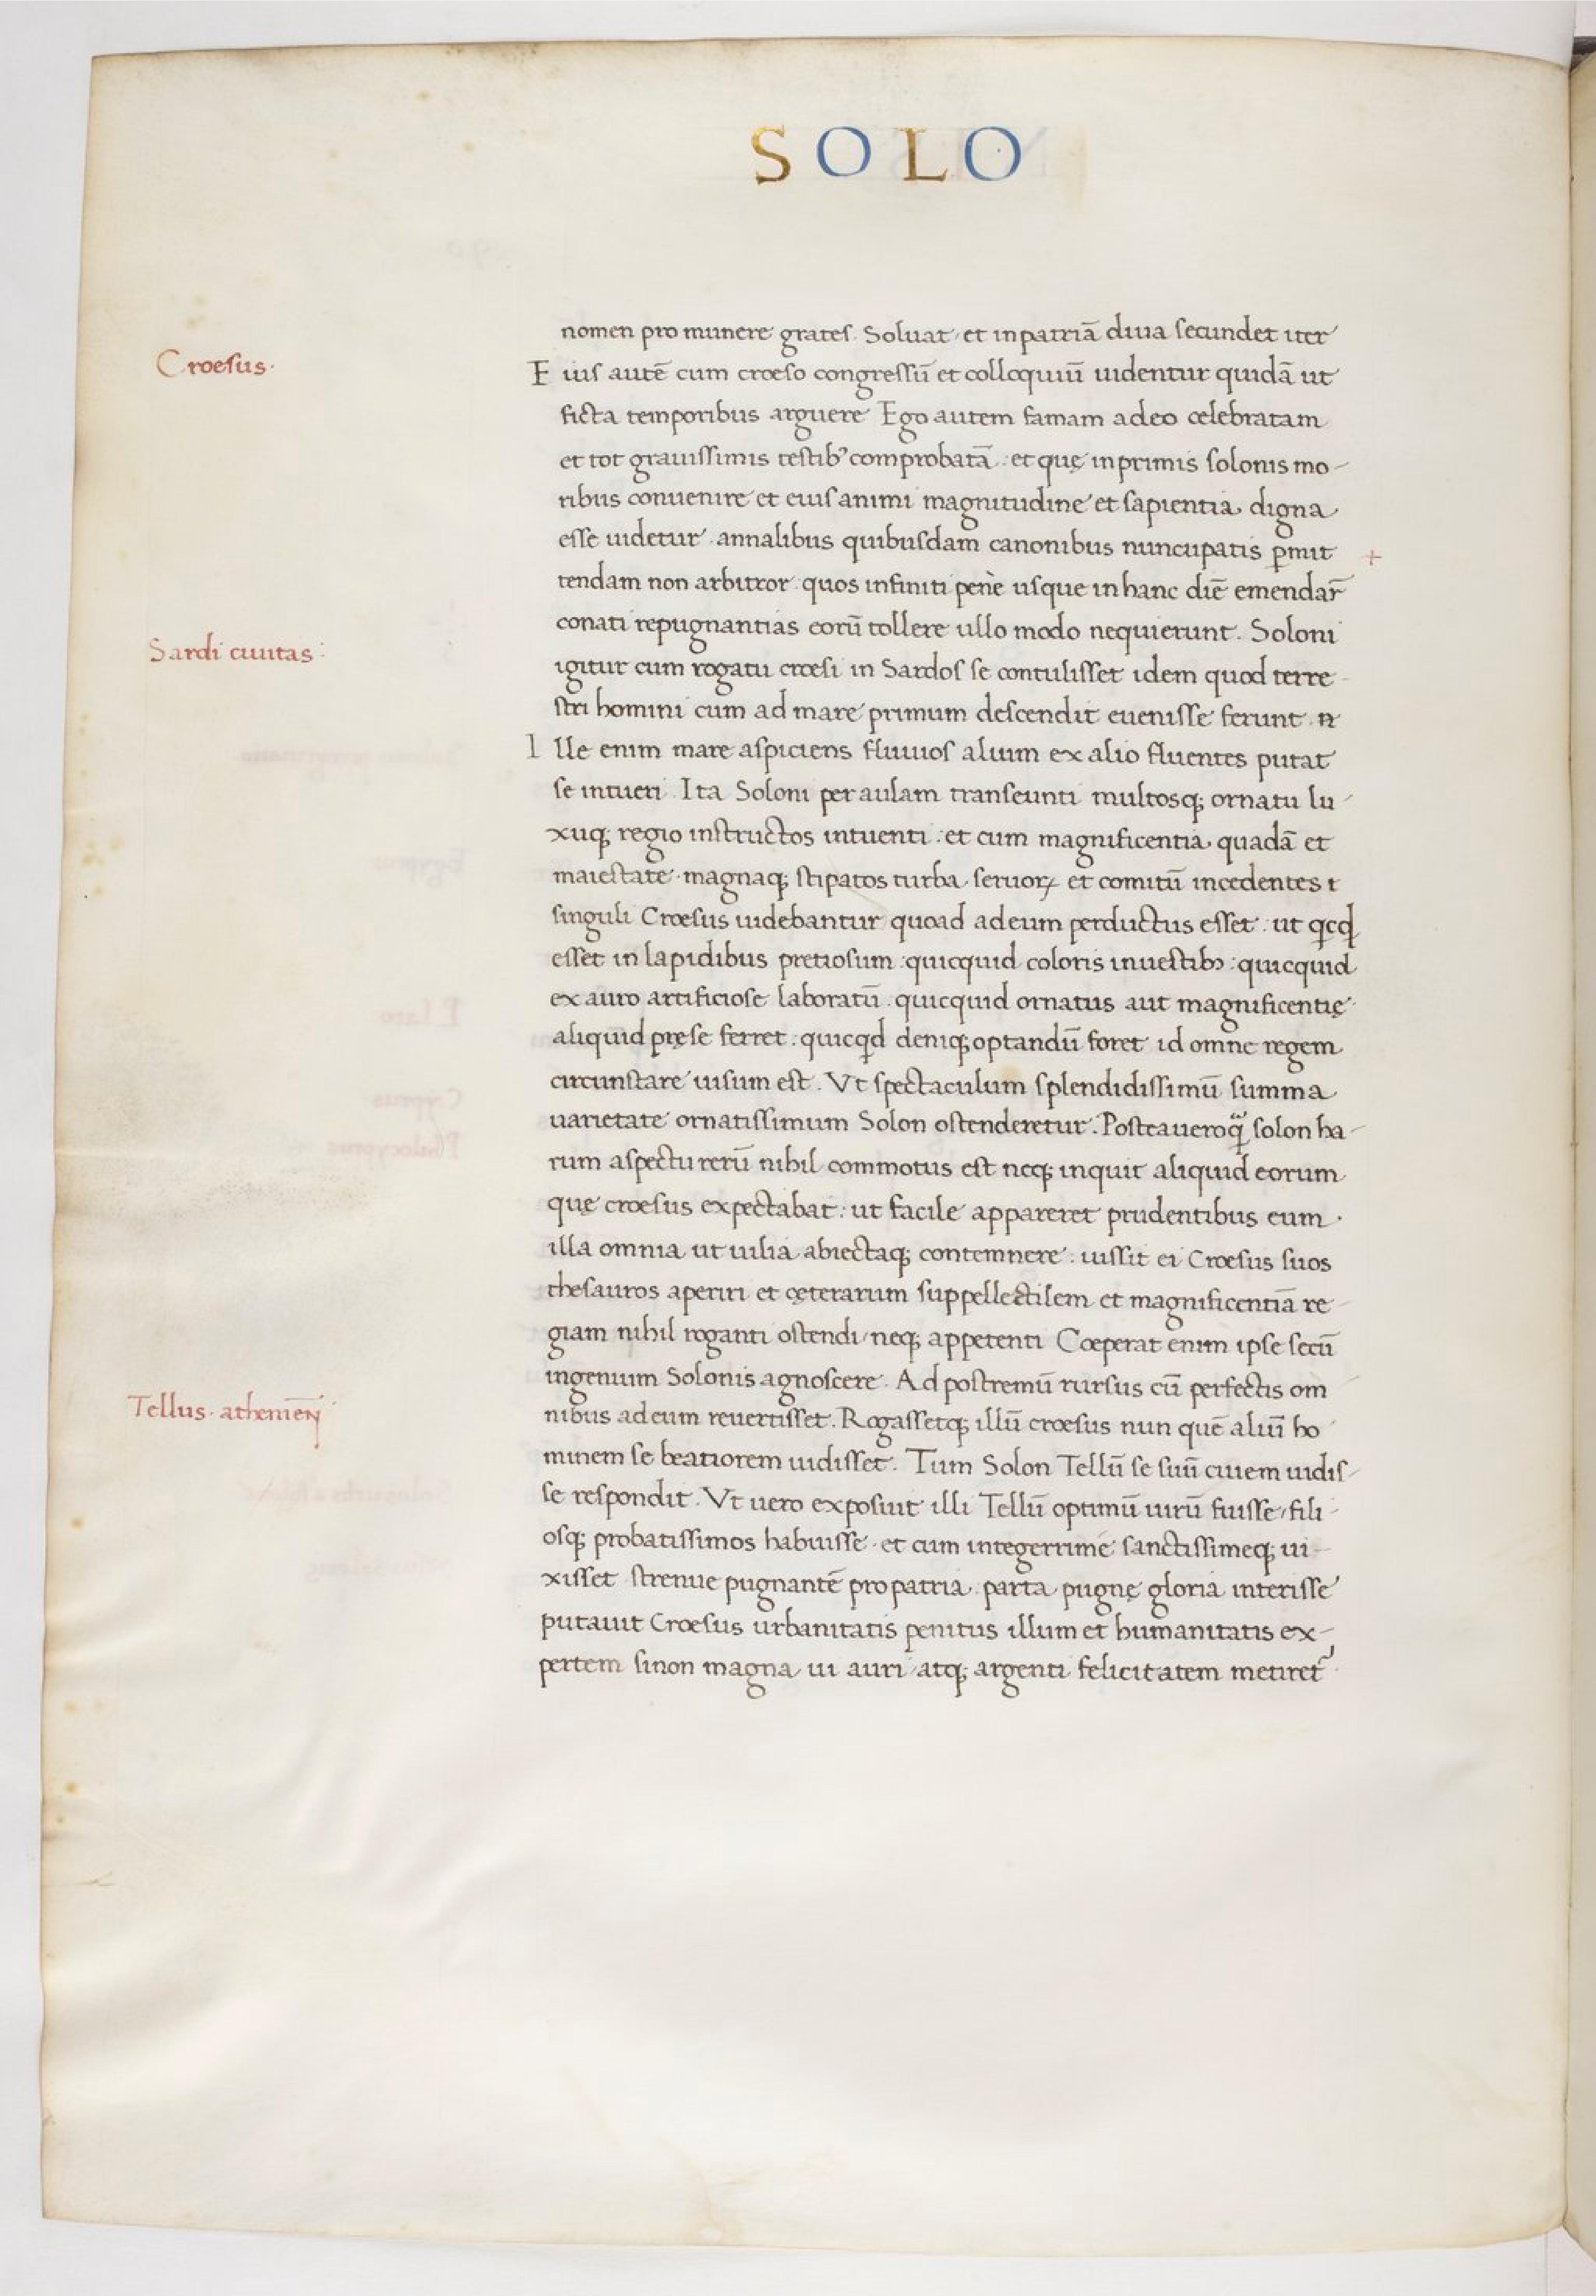 SOLO
nomen pro munere grates. Soluat et in patriā diua secundet iter
Croesus.
Eius autē cum croeso congressū et colloquiū uidentur quidā ut
ficta temporibus arguere Ego autem famam adeo celebratam
et tot grauissimis testibꝰ comprobatā : et quę inprimis solonis mo-
ribus conuenire et eius animi magnitudine et sapientia digna
esse uidetur . annalibus quibusdam canonibus nuncupatis ꝑmit +
tendam non arbitror . quos infiniti penè usque in hanc diē emendar̄
conati repugnantias eorū tollere ullo modo nequierunt . Soloni
Sardi ciuitas :
igitur cum rogatu croesi in Sardos se contulisset idem quod terre-
stri homini cum ad mare primum descendit euenisse ferunt .
Ille enim mare aspiciens fluuios alium ex alio fluentes putat
se intueri . Ita Soloni per aulam transeunti multosq; ornatu lu-
xuq; regio instructos intuenti : et cum magnificentia quadā et
maiestate . magnaq; stipatos turba seruoꝝ et comitū incedentes
singuli Croesus uidebantur quoad ad eum perductus esset : ut qcqd
esset in lapidibus pretiosum : quicquid coloris in uestibꝫ : quicquid
ex auro artificiose laboratū . quicquid ornatus aut magnificentię
aliquid prę se ferret . quicqd deniq; optandū foret id omne regem
circunstare uisum est . Vt spectaculum splendidissimū summa
uarietate ornatissimum Solon ostenderetur . Postea uero q̃ solon ha-
rum aspectu rerū nihil commotus est neq; inquit aliquid eorum
quę croesus expectabat : ut facile appareret prudentibus eum .
illa omnia ut uilia abiectaq; contemnere : iussit ei Croesus suos
thesauros aperiri et cęterarum suppellectilem et magnificentiā re-
giam nihil roganti ostendi neq; appetenti Coeperat enim ipse secū
ingenium Solonis agnoscere . Ad postremū rursus cū perfectis om
Tellus . atheniēn̄
nibus ad eum reuertisset . Rogassetq; illū croesus nun quē aliū ho-
minem se beatiorem uidisset . Tum Solon Tellū se suū ciuem uidis-
se respondit . Vt uero exposuit illi Tellū optimū uirū fuisse / fili-
osq; probatissimos habuisse . et cum integerrime sanctissimeq; ui-
xisset strenue pugnantē pro patria parta pugnę gloria interisse
putauit Croesus urbanitatis penitus illum et humanitatis ex-
pertem si non magna ui auri atq; argenti felicitatem metiret᷑